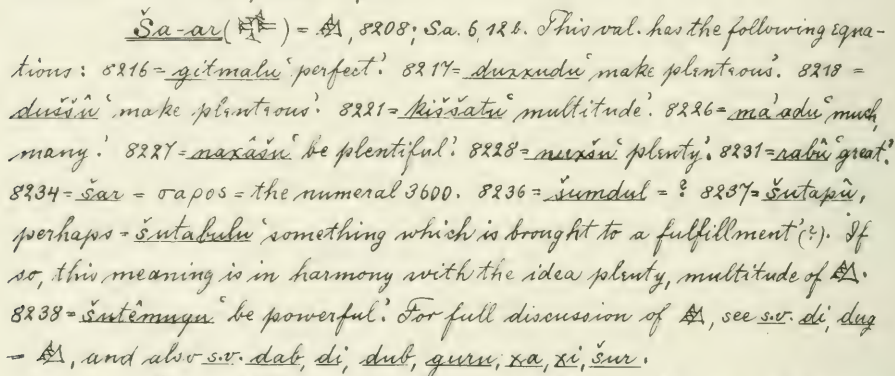 Ša-ar( ) = , 8208; Sa. 6, 12 b. This val. has the following equa-
tions: 8216 = gitmalu ‘perfect’. 8217 = duxxudu ‘make plenteous’. 8218 =
duššû ‘make plenteous’. 8221 = kiššatu ‘multitude’. 8226 = ma'adu ‘much,
many’. 8227 = naxâšu ‘be plentiful’. 8228 = nuxšu ‘plenty’. 8231 = rabû ‘great’.
8234 = šar = σαρος = the numeral 3600. 8236 = šumdul = ? 8237 = šutapû,
perhaps = šutabulu ‘something which is brought to a fulfillment’(?). If
so, this meaning is in harmony with the idea plenty, multitude of .
8238 = šutêmuqu ‘be powerful’. For full discussion of , see s.v. di, dug
= , and also s.v. dab, di, dub, guru, xa, xi, šur.